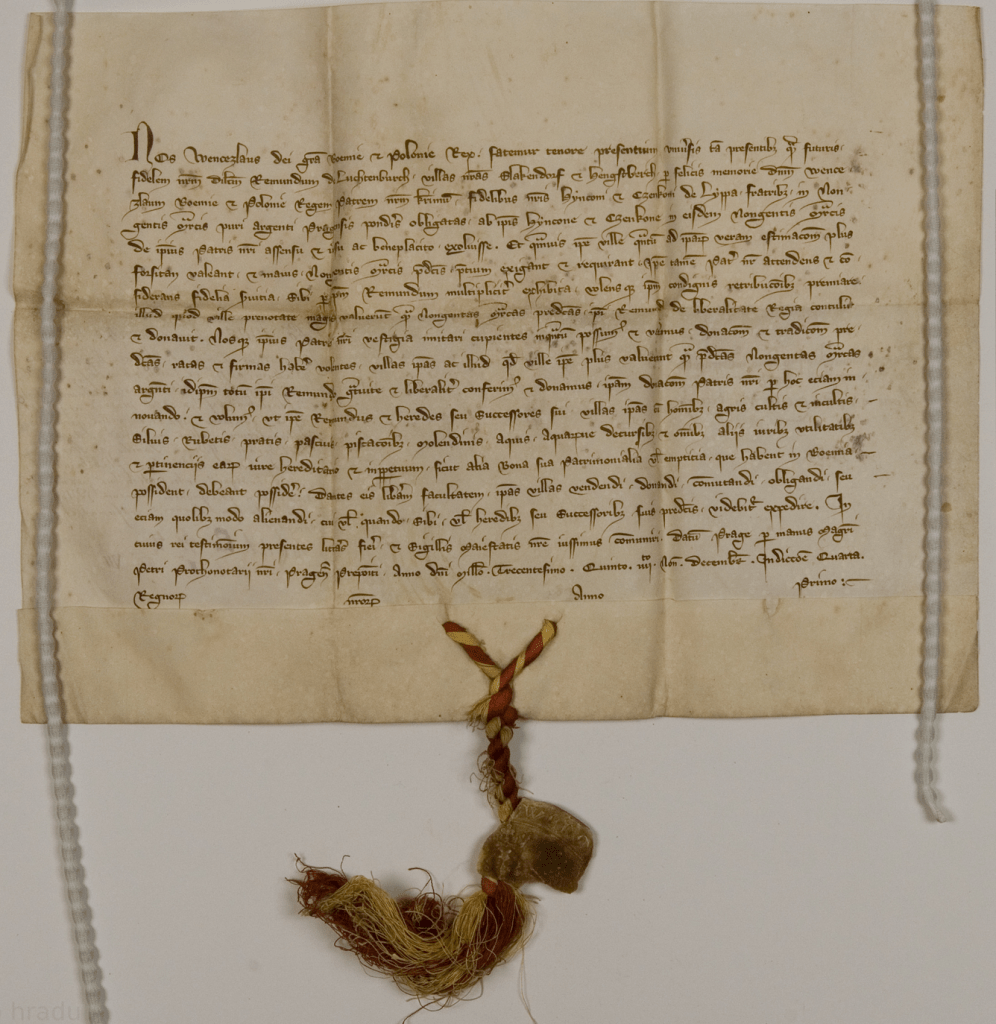 Nos Wencezlaus dei gra Boemie & Polonie Rex. fatemur tenore presentium univsis ta presentibz qm futuris.
fidelem nrm dilcm Remundum de Luchtenburch. villas nras Slakendorf & Hengstberch p felicis memorie dnm wence
zlaum Boemie & Polonie Regem Patrem nrm krimu fidelibus nris Hynconi & Czenkoni de Lyppa. fratribz. in Non
gentis mrcis puri argenti Pragensis ponderis obligatas. ab ipis Hyncone & Czenkone in eisdem Nongentis mrcis
de ipius Patris nri assensu & ac beneplacito exoluisse. Et qmuis ipe ville qntu ad ipar veram estimacom plus
forsitan valeant. & maius. Nongentis mrcis pdcis. ptium exigant & requirant. ipe tame Pat nr attendens & co
siderans fidelia suitia. sibi p ipm Remundum multiplicit exhibita. volens qz ipm condignis retribucoibz premiare
illud quod ville prenotate magis valuerunt qm Nongentas mrcas predcas. ipi Remundo de liberalitate Regia contulit
& donauit. Nos qz ipius Patris nri vestigia imitari cupientes inqntu possim & vamus. donacom & tradicom pre
dcas. ratas & firmas habe volentes. villas ipas ac illud qd ville ipe plus valueant qm pdcas Nongentas mrcas
argnti. idipm totu ipi Remundo gtuite & liberalit conferim & donamus. ipam donacom Patris nri p hoc eciam in
nouando. & volum. ut ipe Remundus & heredes seu Successores sui. villas ipas cu homibz. agris cultis & incultis.
Siluis. Rubetis. pratis. pascuis piscacoibz. Molendinis. Aquis. Aquarumue decursibz & omibz aliis iuribz utilitatibz
& ptinenciis ear iure hereditario & inppetuum. sicut alia Bona sua Patrimonialia vl empticia. que habent in Boemia.
possident. debeant posside. Dantes eis libam facultatem. ipas villas vendendi. donandi. comutandi. obligandi. seu
eciam quolibz modo alienandi. cu vl quando. sibi. vl heredibz seu Successoribz suis predcis. videbit expedire. In
cuius rei testimonium presentes litas fieri. & Sigillis Maiestatis nre iussimus comuniri. Datu Prage p manus Magri
Petri Prothonotarii nri. Pragen Prepoiti. Anno dni Millo. Trecentesimo. Quinto. iiii to Non. Decembr. Indictoe Quarta.
Regnor nror Anno Primo